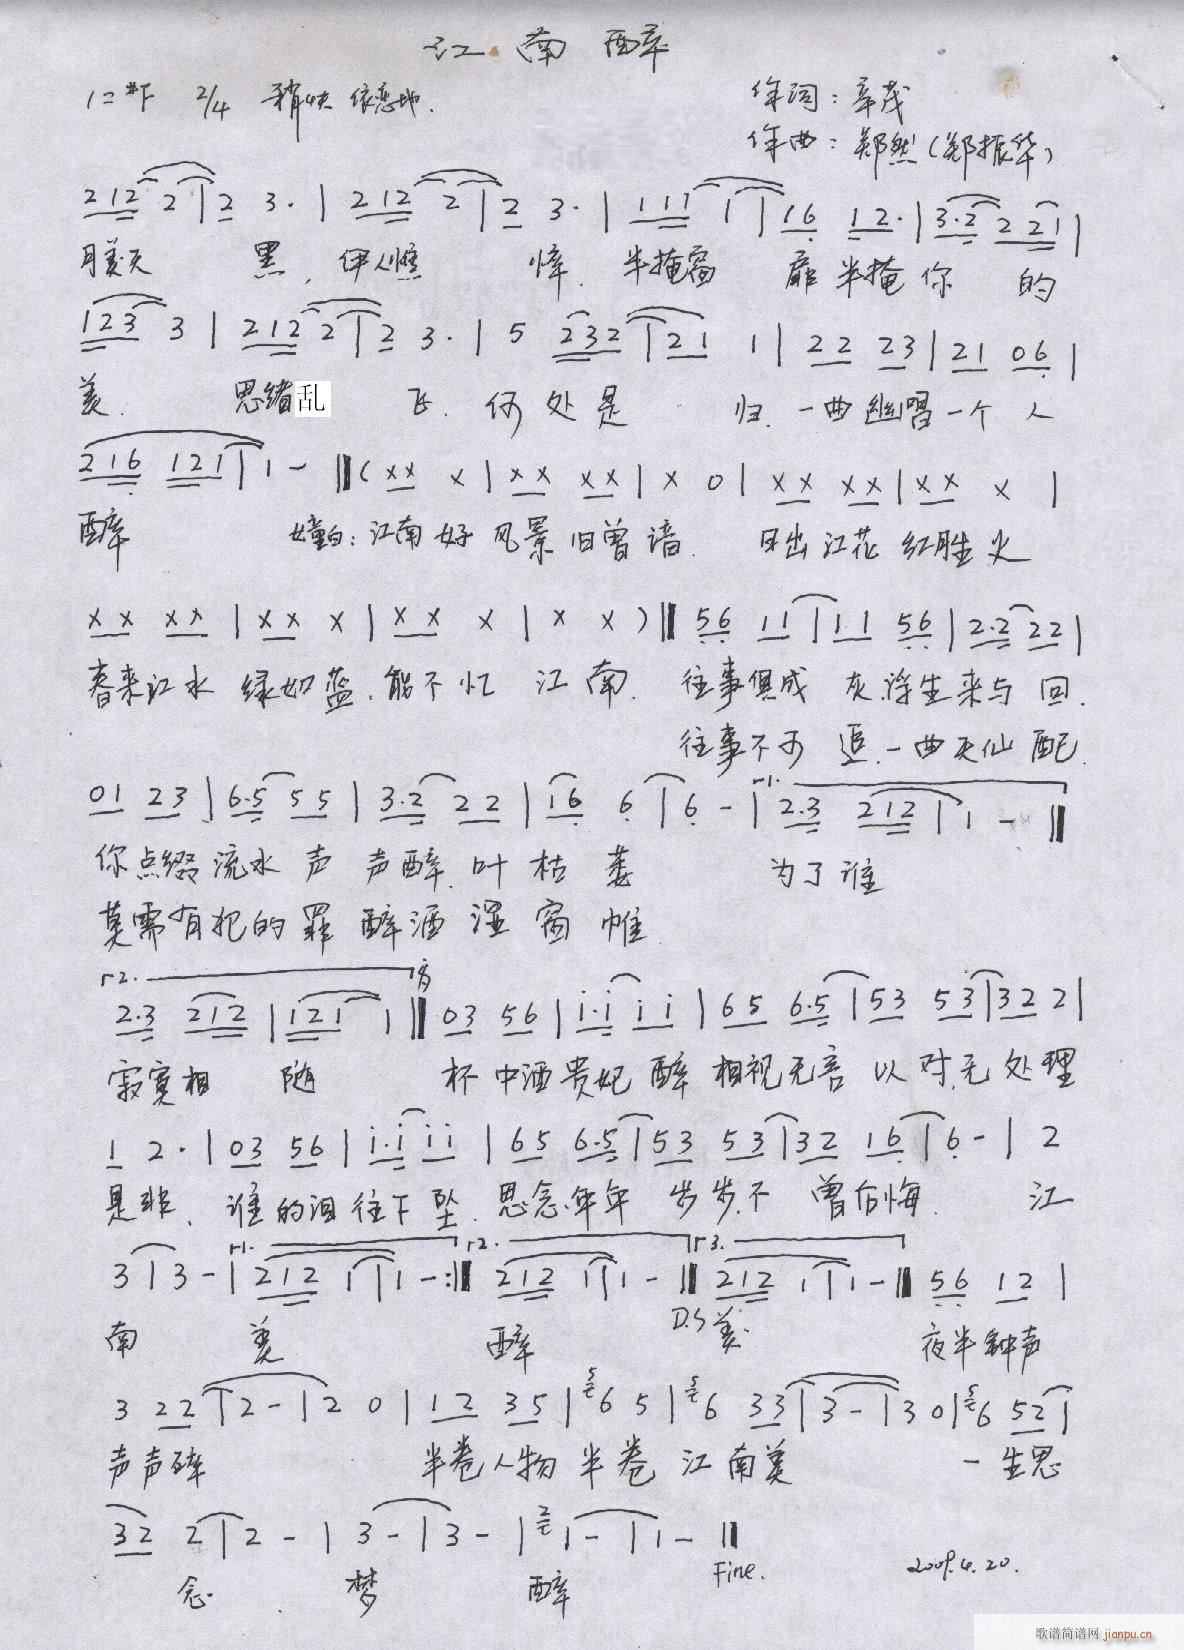 江南醉
1=#F 2/4 稍快 依恋地.
作词：辛茂
作曲：郑然（郑振华）
2 1 2 2 | 2 3 · | 2 1 2 2 | 2 3 · | 1 1 1 1 | 1 6 1 2 · | 3 · 2 2 2 1 |
天 黑，伊人憔 悴. 半掩窗 扉 半掩 你 的
1 2 3 3 | 2 1 2 2 | 2 3 · | 5 2 3 2 | 2 1 1 | 2 2 2 3 | 2 1 0 6 |
美. 思绪乱 飞. 何 处 是 归. 一曲幽唱一个 人
2 1 6 1 2 1 | 1 – ‖ ( X X X | X X X X | X 0 | X X X X | X X X |
醉 白：江南好 风景旧曾谙. 日出江花 红胜火
X X X X | X X X | X X X | X X ) ‖ 5 6 1 1 | 1 1 5 6 | 2 · 2 2 2 |
春来江水 绿如蓝. 能不忆 江南. 往事俱成 灰.浮生来与 回.
往事不可 追.一曲天仙 配.
0 1 2 3 | 6 · 5 5 5 | 3 · 2 2 2 | 1 6 6 | 6 – | 1. 2 · 3 2 1 2 | 1 – ‖
你点缀流水 声 声醉.叶 枯 萎 为了谁
莫需有犯的 罪 醉酒 湿 窗 帷
2. 2 · 3 2 1 2 | 1 2 1 1 ‖ 0 3 5 6 | i · i i i | 6 5 6 · 5 | 5 3 5 3 | 3 2 2 |
寂寞相 随 杯中酒贵妃 醉 相视无言 以对.无 处理
1 2 · | 0 3 5 6 | i · i i i | 6 5 6 · 5 | 5 3 5 3 | 3 2 1 6 | 6 – | 2
是非. 谁的泪往下 坠. 思念年年 步步.不 曾后悔. 江
3 | 3 – | 1. 2 1 2 1 | 1 – :‖ 2. 2 1 2 1 | 1 – ‖ 3. 2 1 2 1 | 1 – ‖ 5 6 1 2 |
南 美 醉 D.S 美. 夜半钟声
3 2 2 | 2 – | 2 0 | 1 2 3 5 | 5 6 5 | 5 6 3 3 | 3 – | 3 0 | 5 6 5 2 |
声声碎 半卷人物 半卷 江南美 一生思
3 2 2 | 2 – | 3 – | 3 – | 2 1 – | 1 – ‖
念. 梦 醉 Fine. 2009.4.20.
歌谱简谱网 jianpu.cn